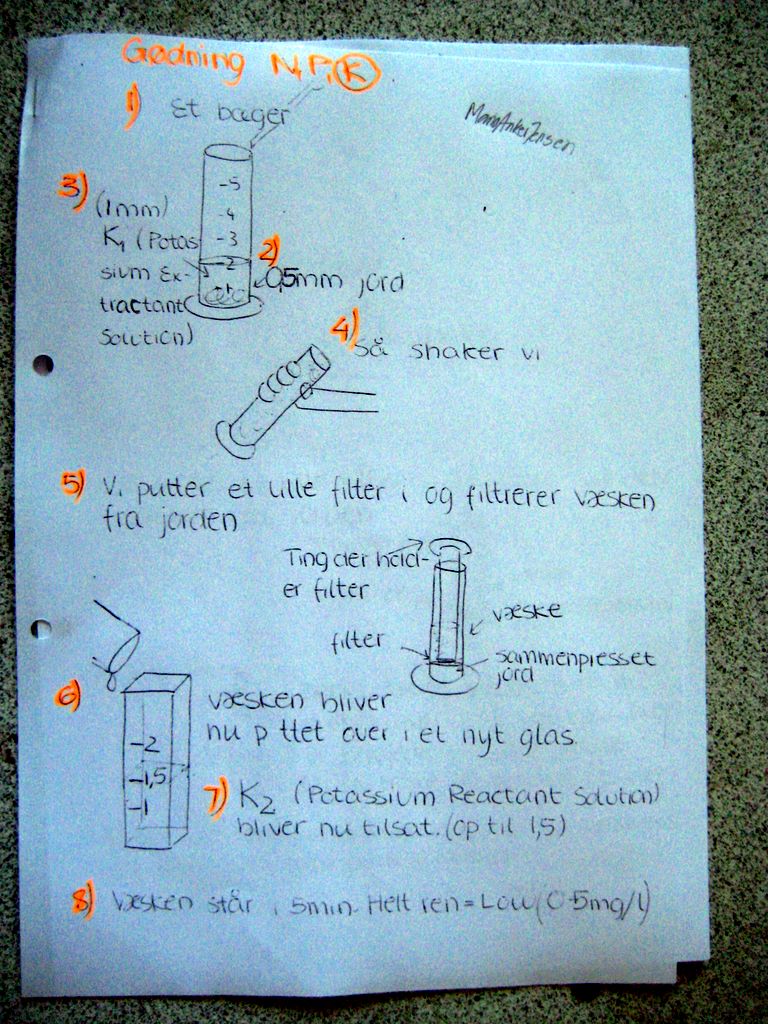 Gødning N, P, K
1) Et bæger
3) (1mm)
K1 (Potas
sium Ex-
tractant
Solution)
-5
-4
-3
-2
-1
2) 0,5mm jord
4) Så shaker vi
5) Vi putter et lille filter i og filtrerer væsken
fra jorden
Ting der hold-
er filter
væske
filter
sammenpresset
jord
6) væsken bliver
nu p ttet over i et nyt glas.
-2
-1,5
-1
7) K2 (Potassium Reactant Solution)
bliver nu tilsat. (op til 1,5)
8) Væsken står i 5min. Helt ren = Low (0-5mg/l)